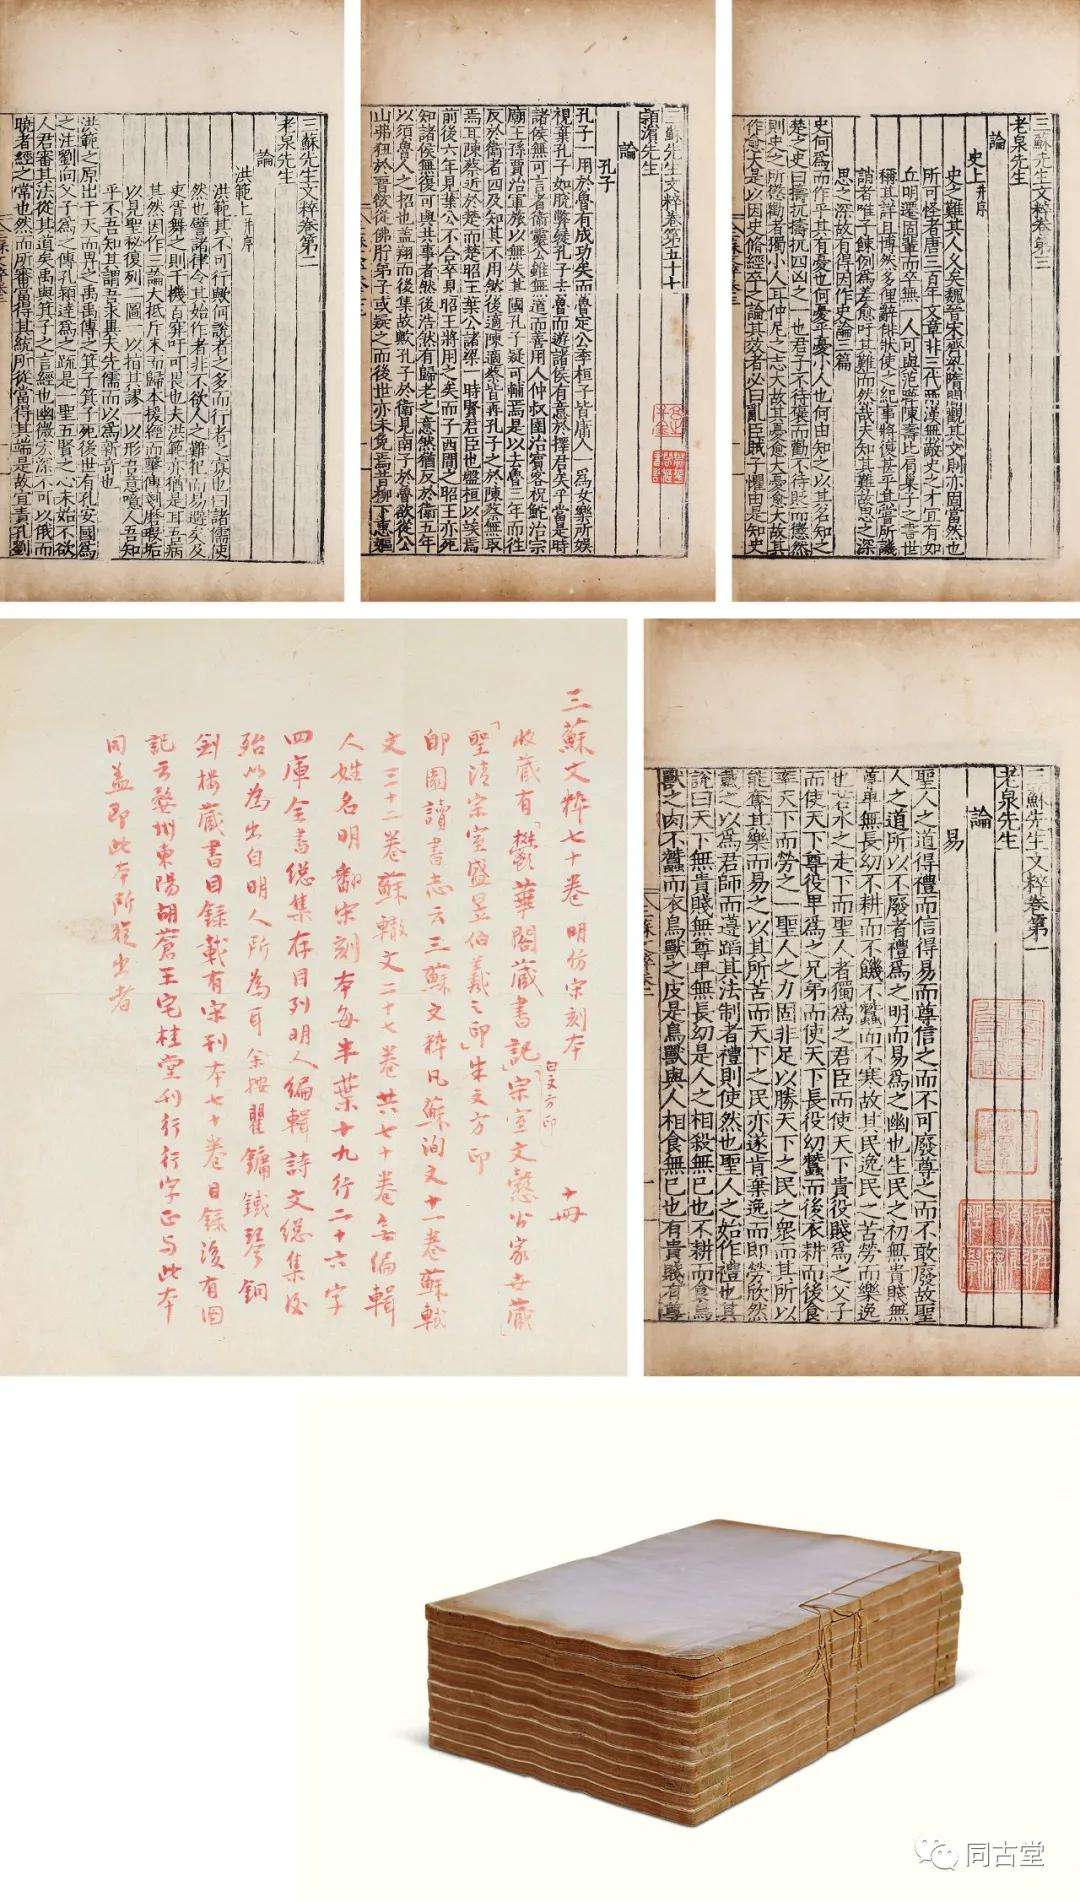 三蘇先生文粹卷第二
老泉先生
論
洪範上并序
洪範其不可行歟何說者之多而行者之寡也曰諸儒使
然也譬諸律令其始作者非不欲人之難犯而易避矣及
吏胥舞之則千機百穽吁可畏也夫洪範亦猶是耳吾病
其然因作三論大抵斥末而歸本援經而擊傳剗磨瑕垢
以見聖秘復列二圖一以指其謬一以形吾意噫人吾知
乎不吾知其謂吾求異夫先儒而以爲新奇也
洪範之原出于天而畀之禹禹傳之箕子箕子死後世有孔安國爲
之注劉向父子爲之傳孔穎達爲之疏是一聖五賢之心未始不欲
人君審其法從其道矣禹與箕子之言經也幽微宏深不可以俄而
曉者經之常也然而所審當得其統所從當得其端是故宜責孔劉
三蘇先生文粹卷第五十七
潁濱先生
論
孔子
孔子一用於魯有成功矣而魯定公季桓子皆庸人一爲女樂所娛
視棄孔子如脫弊屣孔子去魯而遊諸侯有意於擇君矣乎當是時
諸侯無可言者衛靈公雖無道而善用人仲叔圉治賓客祝鮀治宗
廟王孫賈治軍旅以無失其國孔子疑可輔焉是以去魯三年而往
反於衛者四及知其不用然後適陳適蔡皆再孔子之於陳蔡無取
焉耳陳蔡近於楚而楚昭王葉公諸梁一時賢君臣也盤桓以俟焉
前後六年見葉公不合卒見昭王將用之矣而子西間之昭王亦死
知諸侯無復可與共事者然後浩然有歸老之意然猶反於衛五年
以須魯人之招也蓋翔而後集故歟孔子於衛見南子於魯欲從公
山弗狃於晉欲從佛肸弟子或疑之而後世亦未免焉昔柳下惠嫗
三蘇先生文粹卷第三
老泉先生
論
史上并序
史之難其人久矣魏晉宋齊梁隋間觀其文則亦固當然也
所可怪者唐三百年文章非三代兩漢無敵史之才宜有如
丘明遷固輩而卒無一人可與范曄陳壽比肩巢子之書世
稱其詳且博然多俚辭俳狀使之紀事將復甚乎其嘗所譏
誚者唯子餗例爲差愈吁其難而然哉夫知其難故思之深
思之深故有得因作史論三篇
史何爲而作乎其有憂也何憂乎憂小人也何由知之以其名知之
楚之史曰檮杌檮杌四凶之一也君子不待襃而勸不待貶而懲然
則史之所懲勸者獨小人耳仲尼之志大故其憂愈大憂愈大故其
作愈大是以因史修經卒之論其效者必曰亂臣賊子懼由是知史
三蘇文粹七十卷 明仿宋刻本 十冊
收藏有「鬱華閣藏書記」白文方印「宗室文慤公家世藏」
「聖清宗室盛昱伯羲之印」朱文方印
郋園讀書志云三蘇文粹凡蘇洵文十一卷蘇軾
文三十二卷蘇轍文二十七卷共七十卷無編輯
人姓名明翻宋刻本每半葉十九行二十六字
四庫全書總集存目列明人編輯詩文總集後
殆以為出自明人所為耳余按瞿鏞鐵琴銅
劍樓藏書目錄載有宋刊本七十卷目錄後有圖
記云婺州東陽胡蒼王宅桂堂刊行行字正與此本
同蓋即此本所從出者
三蘇先生文粹卷第一
老泉先生
論
易
聖人之道得禮而信得易而尊信之而不可廢尊之而不敢廢故聖
人之道所以不廢者禮爲之明而易爲之幽也生民之初無貴賤無
尊卑無長幼不耕而不饑不蠶而不寒故其民逸民之苦勞而樂逸
也若水之走下而聖人者獨爲之君臣而使天下貴役賤爲之父子
而使天下尊役卑爲之兄弟而使天下長役幼蠶而後衣耕而後食
率天下而勞之一聖人之力固非足以勝天下之民之衆而其所以
能奪其樂而易之以其所苦而天下之民亦遂肯棄逸而即勞欣然
戴之以爲君師而遵蹈其法制者禮則使然也聖人之始作禮也其
說曰天下無貴賤無尊卑無長幼是人之相殺無已也不耕而食鳥
獸之肉不蠶而衣鳥獸之皮是鳥獸與人相食無已也有貴賤有尊
同古堂